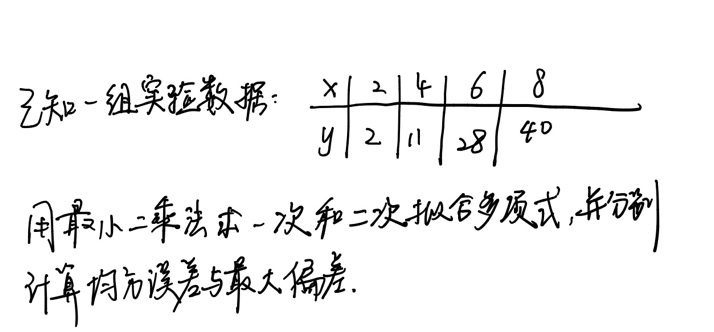 已知一组实验数据: x 2 4 6 8
y 2 11 28 40
用最小二乘法求一次和二次拟合多项式,并分别
计算均方误差与最大偏差.